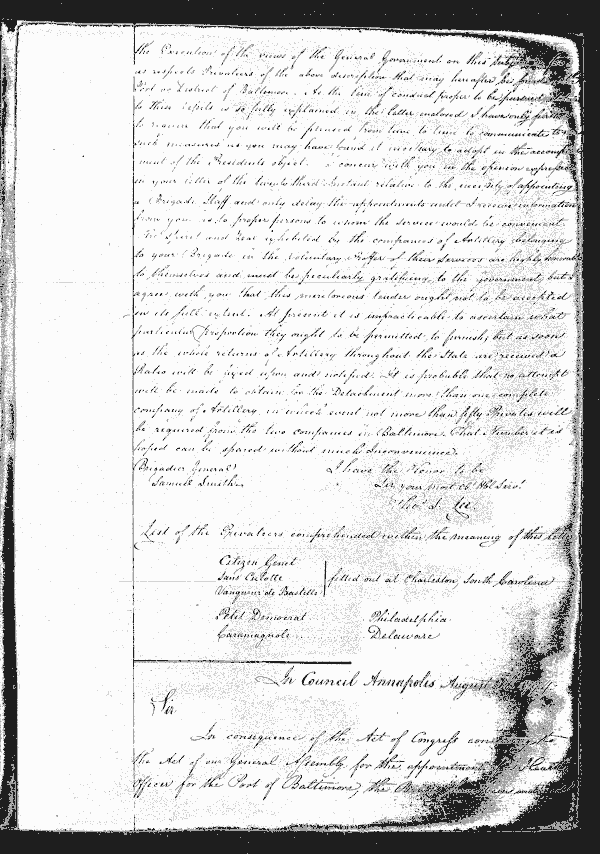 the Execution of the views of the General Government on this
as respects Privateers of the above description that may hereafter be
Port or District of Baltimore. As the line of conduct proper to be pursued
to these Vessels is so fully explained in the letter enclosed I have only
to request that you will be pleased from time to time to communicate to
such measures as you may have found it necessary to adopt in the accomp
ment of the Presidents object. I concur with you in the opinion expressed
in your letter of the twenty third Instant relative to the necessity of appointing
a Brigade Staff and only delay the appointments until I receive information
from you as to proper persons to whom the service would be convenient.
The Spirit and Zeal exhibited by the companies of Artillery belonging
to your Brigade in the Voluntary Proffer of their Services are highly honorable
to themselves and must be peculiarly gratifying to the government, but I
agree with you that this meritorious tender ought not to be accepted
in its full extent. At present it is impracticable to ascertain what
particular proportion they ought to be permitted to furnish, but as soon
as the whole returns of Artillery throughout the State are received a
Ratio will be fixed upon and notified. It is probable that no attempt
will be made to obtain for the Detachment more than one complete
company of Artillery, in which event not more than fifty Privates will
be required from the two companies in Baltimore. That Number it is
hoped can be spared without much Inconvenience.
Brigadier General I have the Honor to be
Samuel Smith Sir your most Ob. Hble Servt.
Thos. S. Lee
List of the Privateers comprehended within the meaning of this letter
Citizen Genet
Sans Culotte fitted out at Charleston, South Carolina
Vanqueur de Bastille
Petit Democrat Philadelphia
Caramagnole Delaware
In Council Annapolis August
Sir
In consequence of the Act of Congress
the Act of our General Assembly for the appointment
Officer for the Port of Baltimore, the